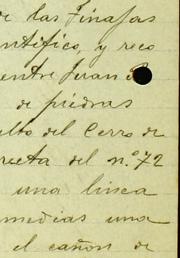 de las Tinajas
entífico, y reco
entre Juan
de piedras
alto del Cerro de
receta del n.º 72
una linea
medias una
el cañon de